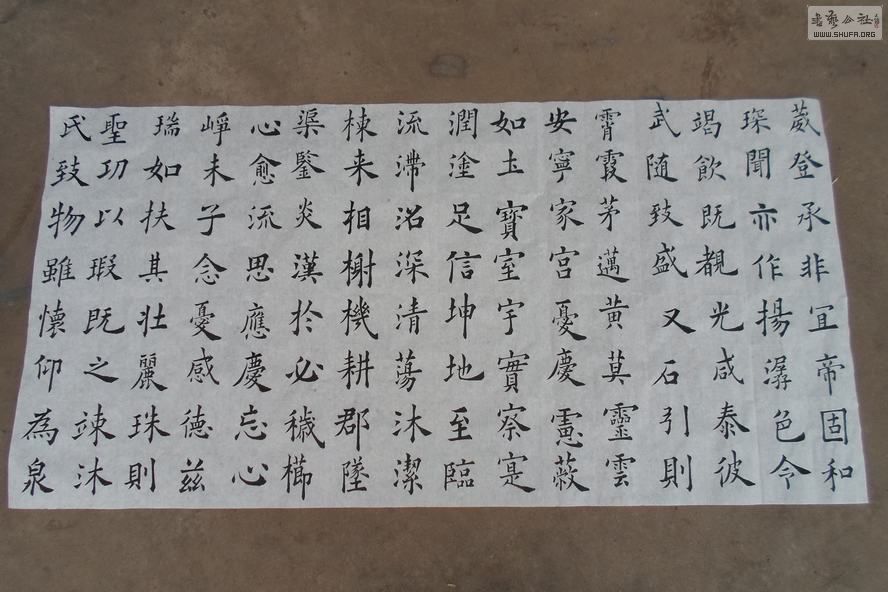 葳登承非宜帝固和
琛聞亦作揚潺色令
竭飲既覩光咸泰彼
武随致盛又石引則
霄霞茅邁黄莫靈雲
安寧家宫憂慶憲蔽
如土寳室宇實察寔
潤塗足信坤地至臨
流滯洺深清蕩沐潔
棟来相榭機耕郡墜
渠鑒炎漢於必穢櫛
心愈流思應慶忘心
崢未子念憂感德兹
瑞如扶其壮麗珠則
聖功以瑕既之竦沐
氏致物雖懷仰為泉
書藝公社
WWW.SHUFA.ORG